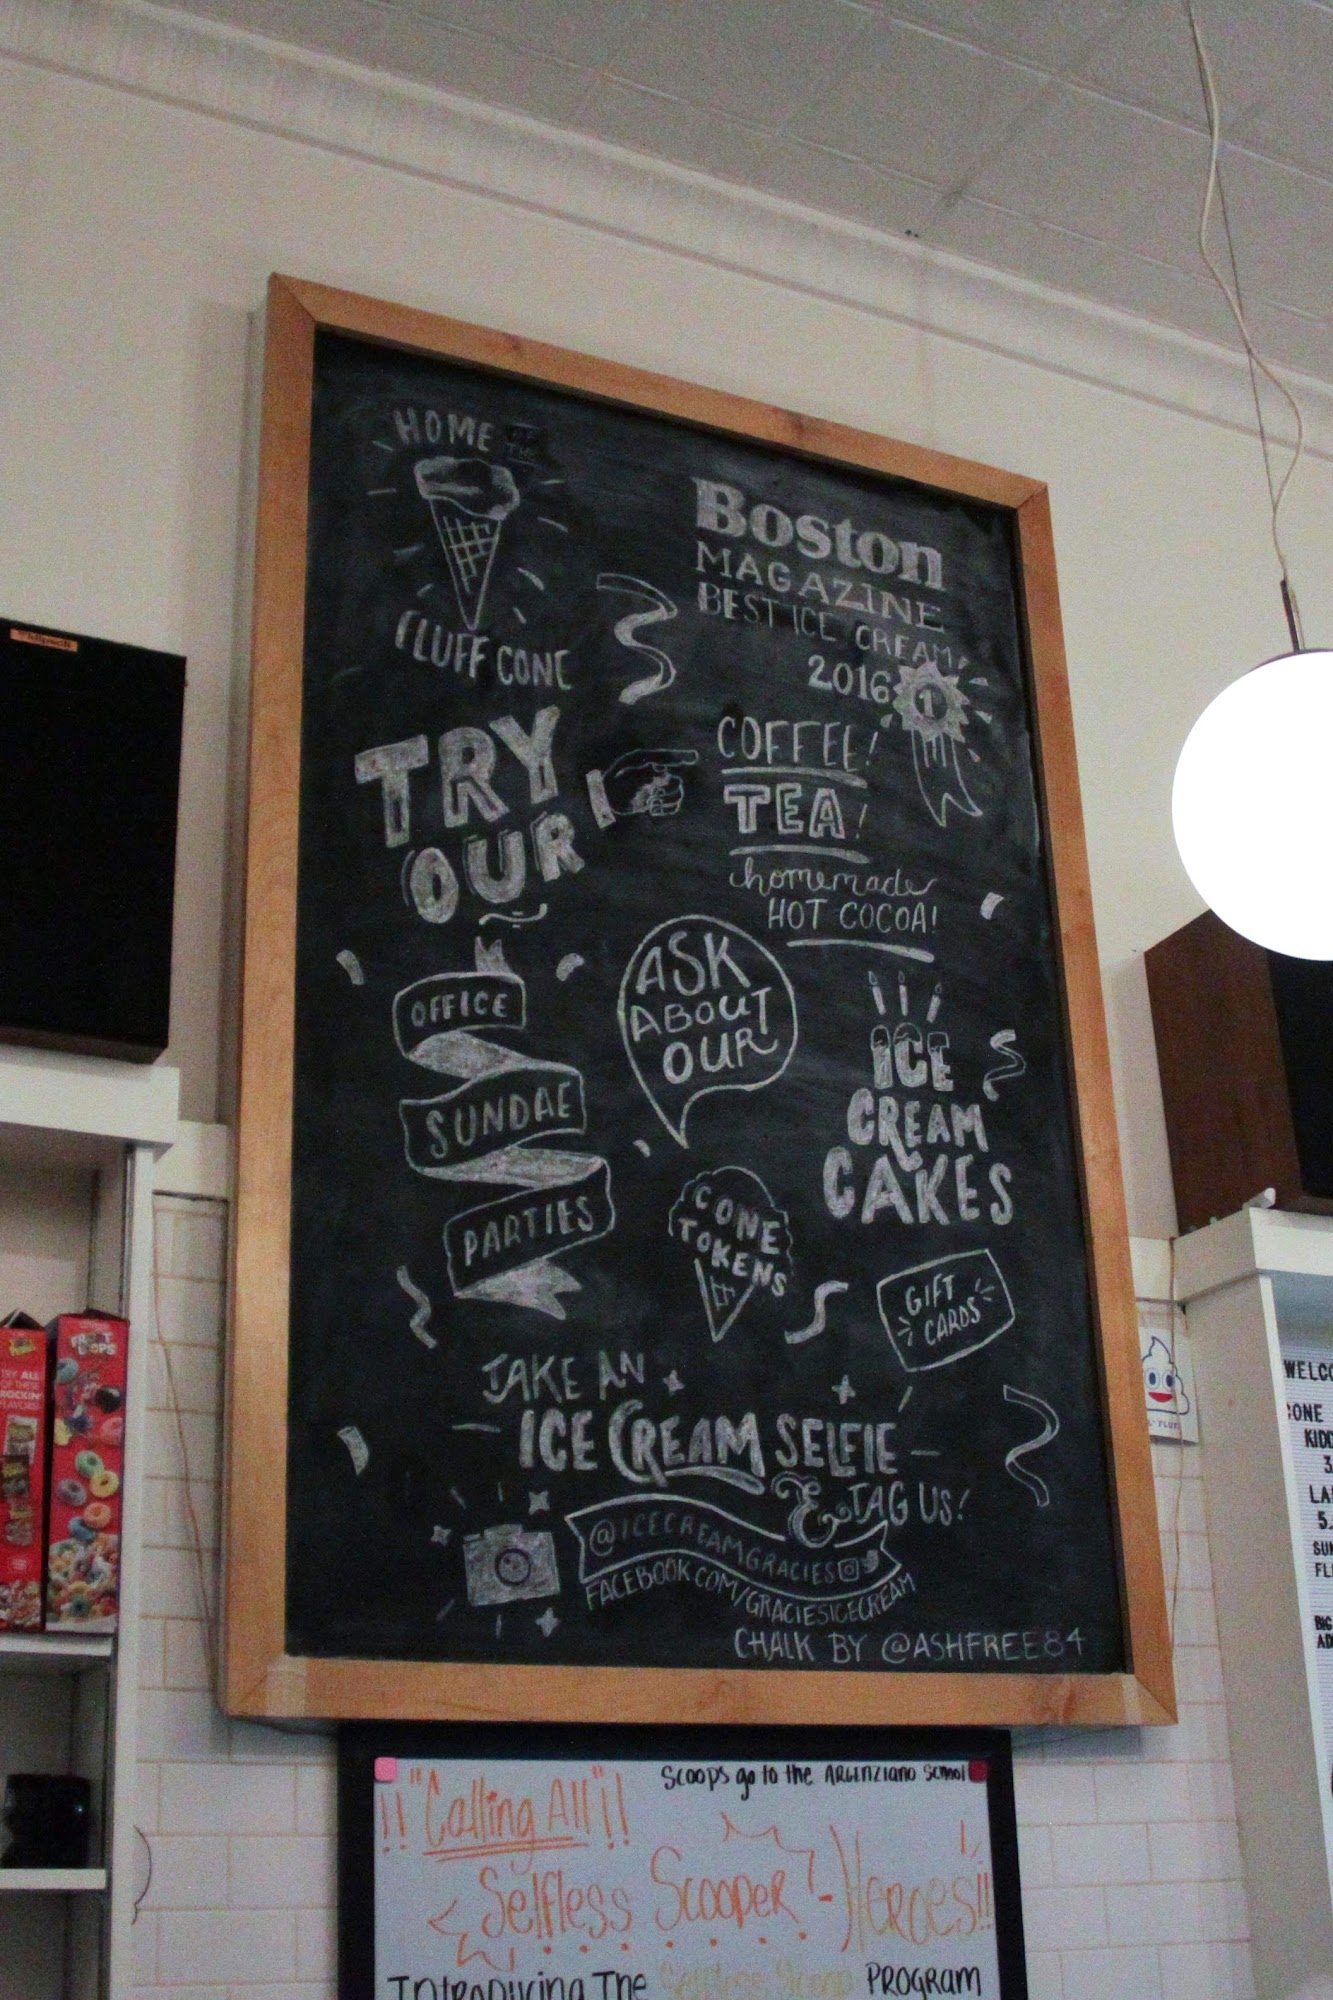 HOME OF THE
FLUFF CONE
Boston
MAGAZINE
BEST ICE CREAM!
2016
1
TRY
OUR
COFFEE!
TEA!
homemade
HOT COCOA!
OFFICE
SUNDAE
PARTIES
ASK
ABOUT
OUR
ICE
CREAM
CAKES
CONE
TOKENS
GIFT
CARDS
TAKE AN
ICE CREAM SELFIE
& TAG US!
@ICECREAMGRACIES
FACEBOOK.COM/GRACIESICECREAM
CHALK BY @ASHFREE84
klipsch
TRY ALL
OF THESE
ROCKIN'
FLAVORS
FROOT
LOOPS
WELCO
CONE
KIDD
3
LA
5.
SUN
FL
BIG
AD
Scoops go to the ARGENZIANO School
!! "Calling All" !!
Selfless Scooper - Heroes!!
Introducing The Selfless Scoop PROGRAM